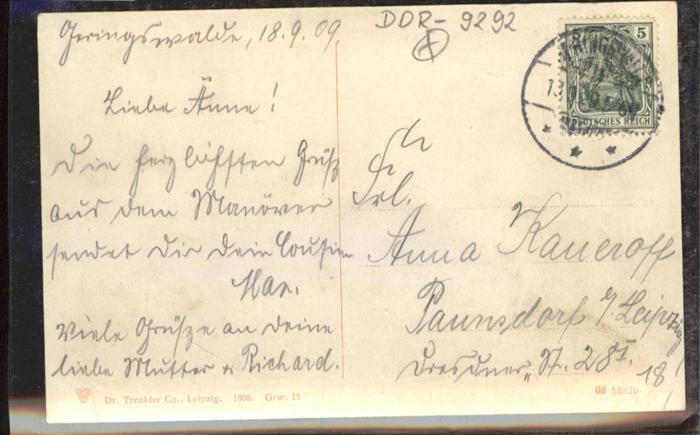 Geringswalde, 18.9.09.
DDR-9292
Liebe Änne!
Die herzlichsten Grüße
aus dem Manöver
sendet Dir Dein Cousin
Max.
Viele Grüße an Deine
liebe Mutter u. Richard.
5
DEUTSCHES REICH
Frl.
Anna
Paunsdorf b/Leipzig
Dresdner Str. 28 I.
18
Dr. Trenkler Co., Leipzig. 1908. Grw. 15
08 58826